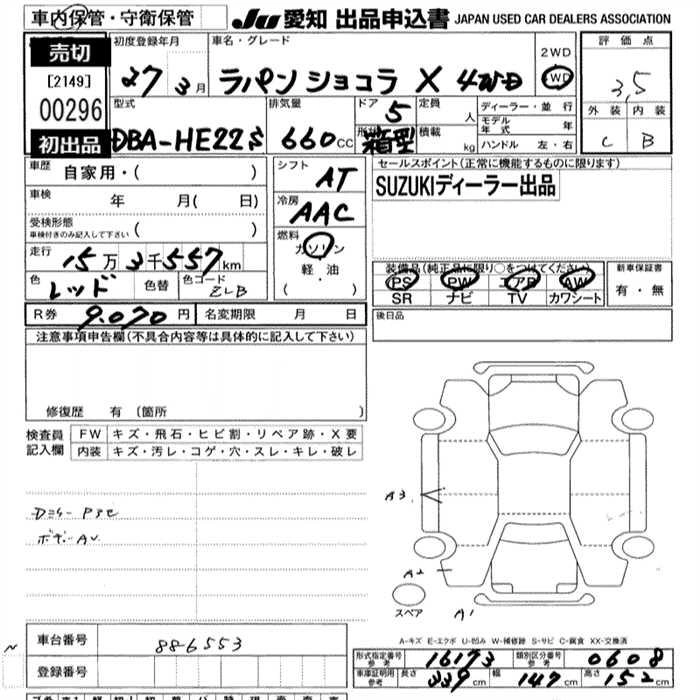 車内保管・守衛保管
JU 愛知 出品申込書 JAPAN USED CAR DEALERS ASSOCIATION
売切
[2149]
00296
初出品
初度登録年月
27 3月
車名・グレード
ラパン ショコラ X 4WD
2WD
4WD
評価点
3,5
外装 内装
C B
型式
DBA-HE22S
排気量
660cc
ドア 5
形状 箱型
定員 人
積載 kg
ディーラー・並行
モデル年式 年
ハンドル 左・右
車歴
自家用・( )
車検
年 月( 日)
受検形態
車検付きのみ記入して下さい ( )
走行
15万3千557km
色
レッド
色替
色コード
ZLB
シフト
AT
冷房
AAC
燃料
ガソリン
軽・油
( )
セールスポイント(正常に機能するものに限ります)
SUZUKIディーラー出品
装備品(純正品に限り○をつけてください)
PS PW エアB AW
SR ナビ TV カワシート
新車保証書
有・無
R券 9.070円
名変期限 月 日
後日品
注意事項申告欄(不具合内容等は具体的に記入して下さい)
修復歴 有 〔箇所 〕
検査員記入欄
FW キズ・飛石・ヒビ割・リペア跡・X要
内装 キズ・汚レ・コゲ・穴・スレ・キレ・破レ
A3
A2
A1
スペア
A-キズ E-エクボ U-凹み W-補修跡 S-サビ C-腐食 XX-交換済
車台番号 886553
登録番号
形式指定番号 参考 16173
類別区分番号 参考 0608
車庫証明用 参考 長さ 339cm 幅 147cm 高さ 152cm